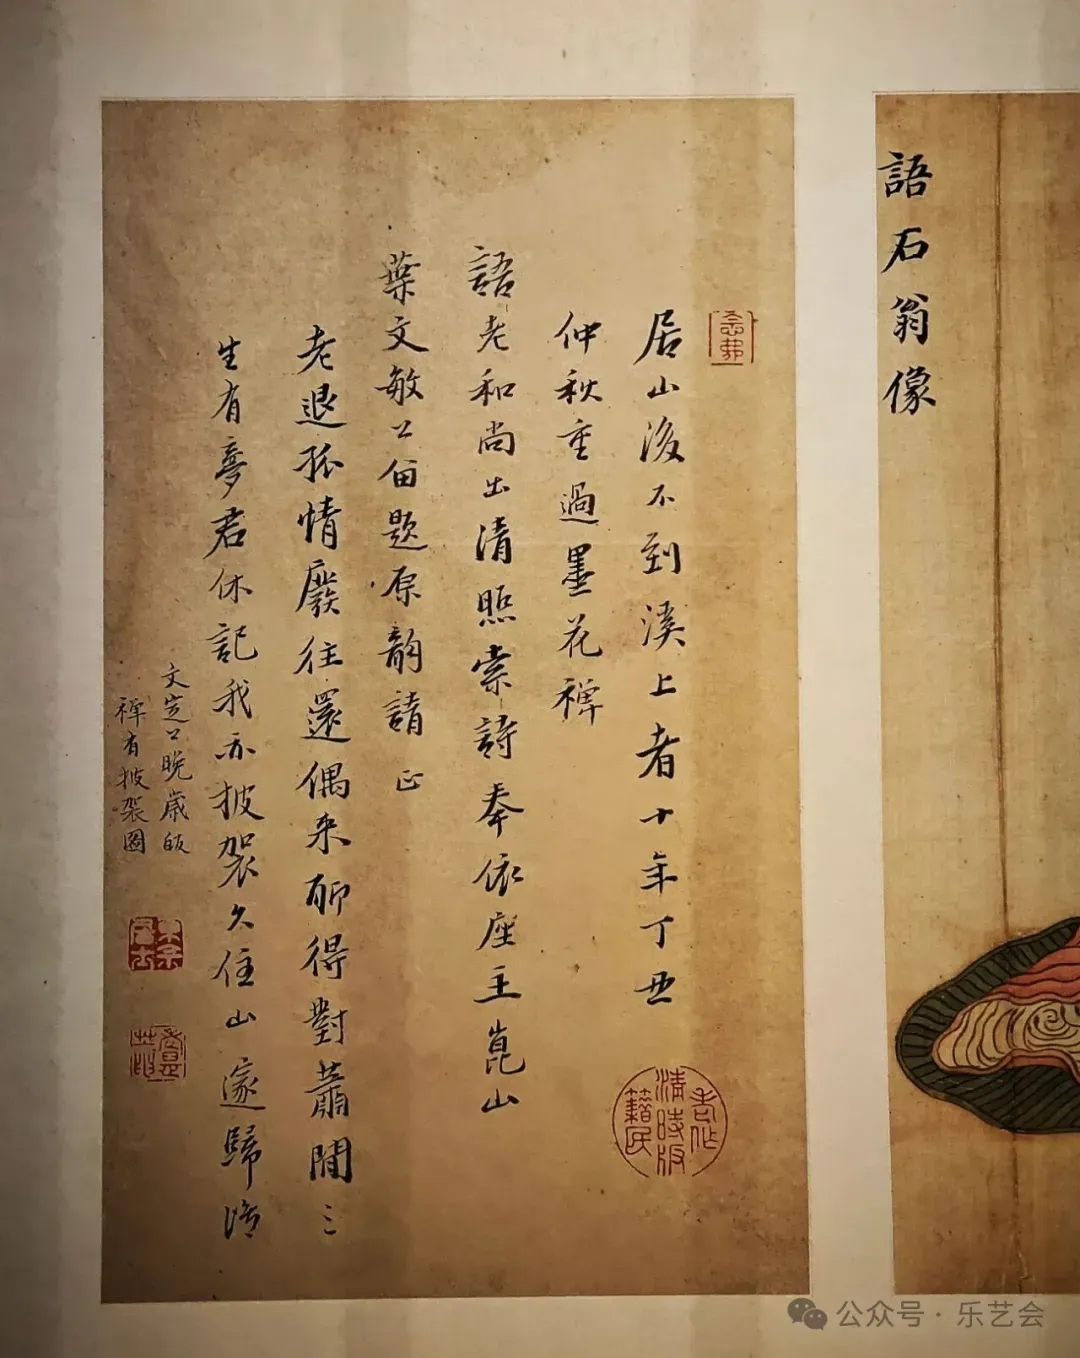 語石翁像
居山後不到溪上者十年丁丑
仲秋重過墨花禪
語老和尚出清照索詩奉依座主崑山
葉文敏公留題原韵請 正
老退孤情廢往還偶来聊得對蕭閒三
生有夢君休記我亦披袈久住山 歸
文定公晚歲皈
禪有披袈圖
老作清時版籍民
公众号·乐艺会